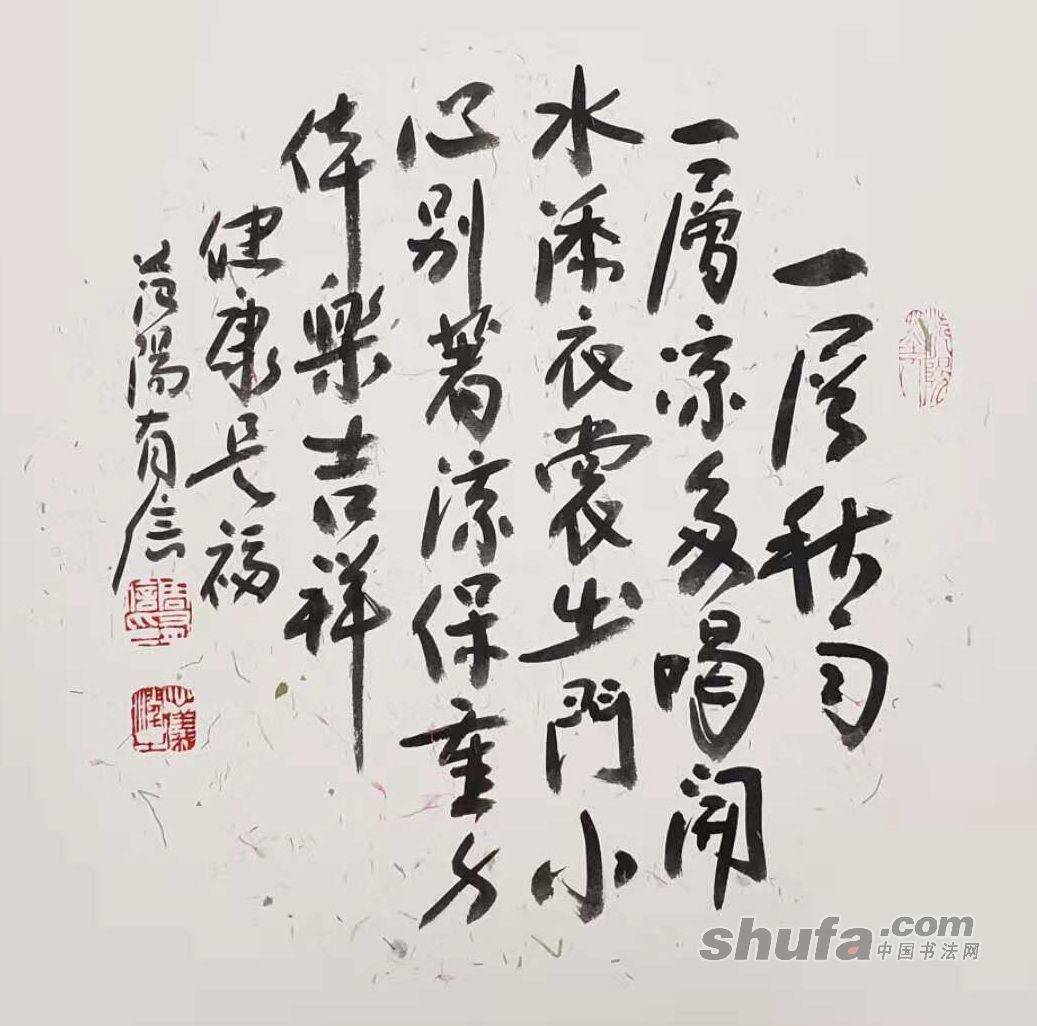 一层秋雨
一層凉多喝開
水添衣裳出門小
心别著凉保重身
体樂吉祥
健康是福
范陽有信
shufa.com
中国书法网